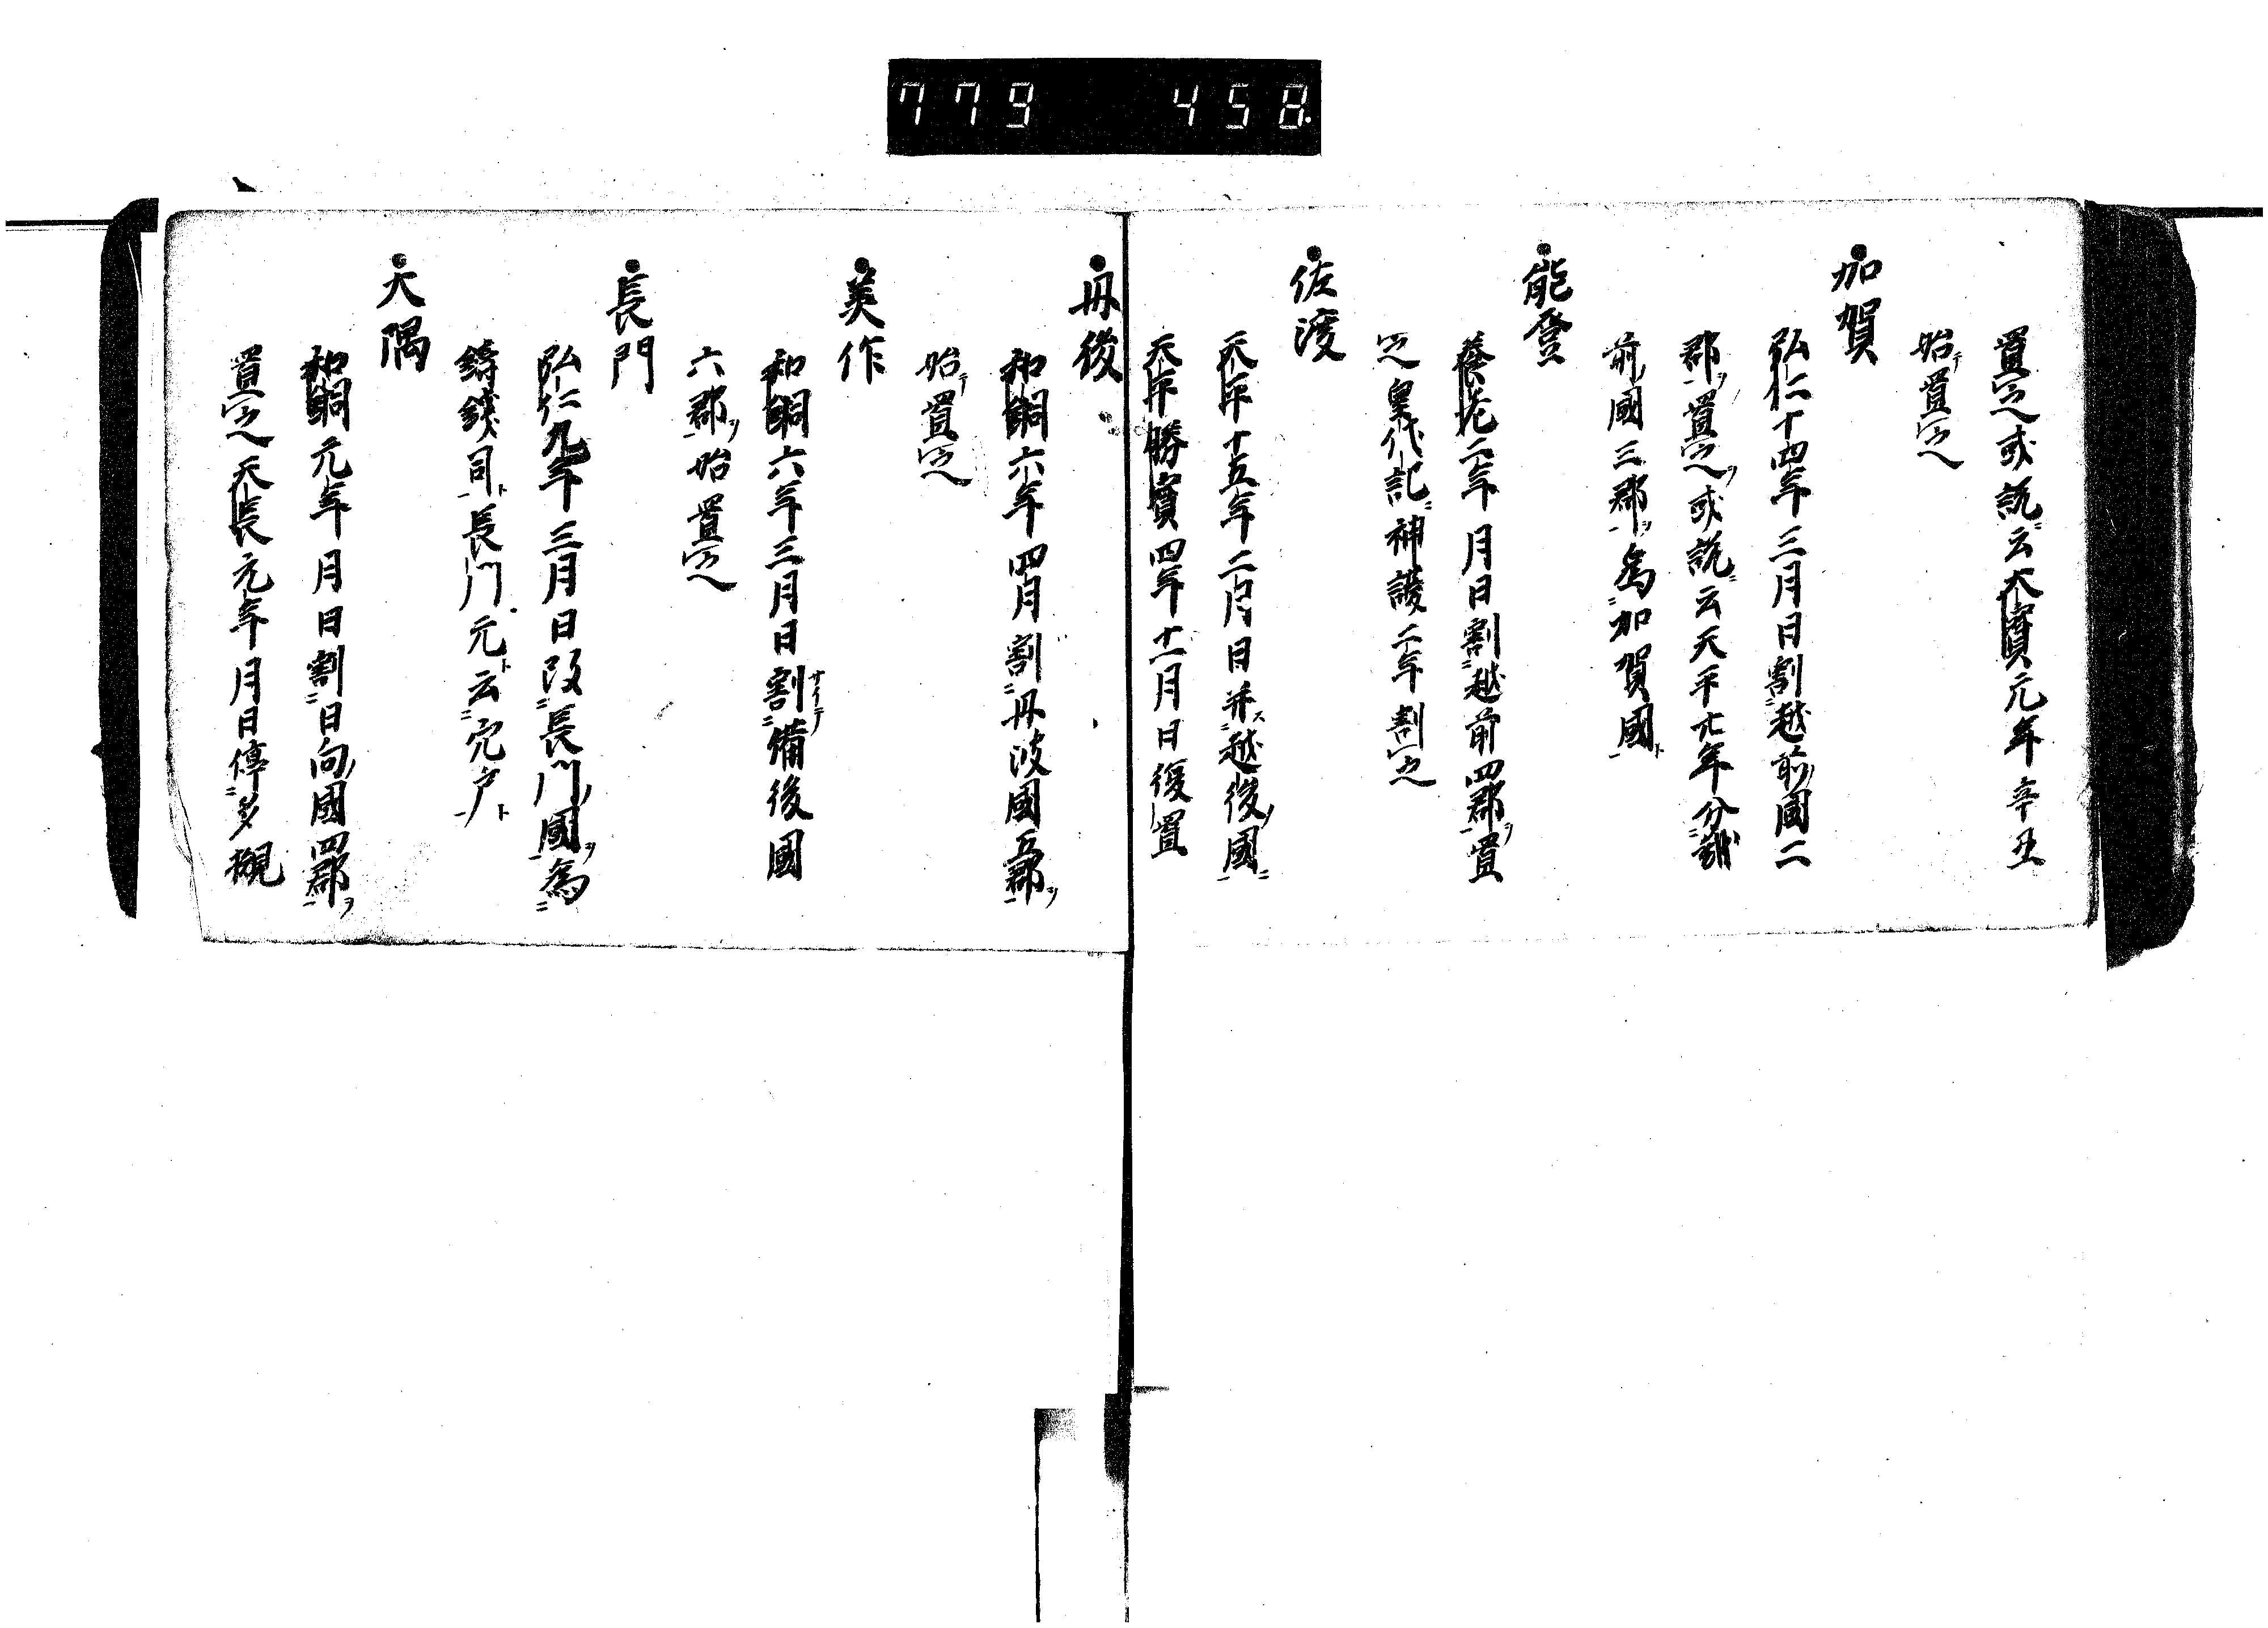 779 458
置之或説云大寶元年辛丑
始テ置之
加賀
弘仁十四年三月日割越前ノ國二
郡ヲ置之或説云天平元年分
前國三郡ヲ為加賀國ト
能登
養老二年月日割越前四郡ヲ置
之皇代記神護二年割之
佐渡
天平十五年二月日并ス越後ノ國ニ
天平勝寶四年十一月日復置
丹後
和銅六年四月割丹波國五郡ヲ
始テ置之
美作
和銅六年三月日割備後國
六郡ヲ始置之
長門
弘仁九年三月日改長門ノ國ヲ為
鑄錢司ト長門元云穴戸ト
大隅
和銅元年月日割日向ノ國四郡ヲ
置之天長元年月日停多褹